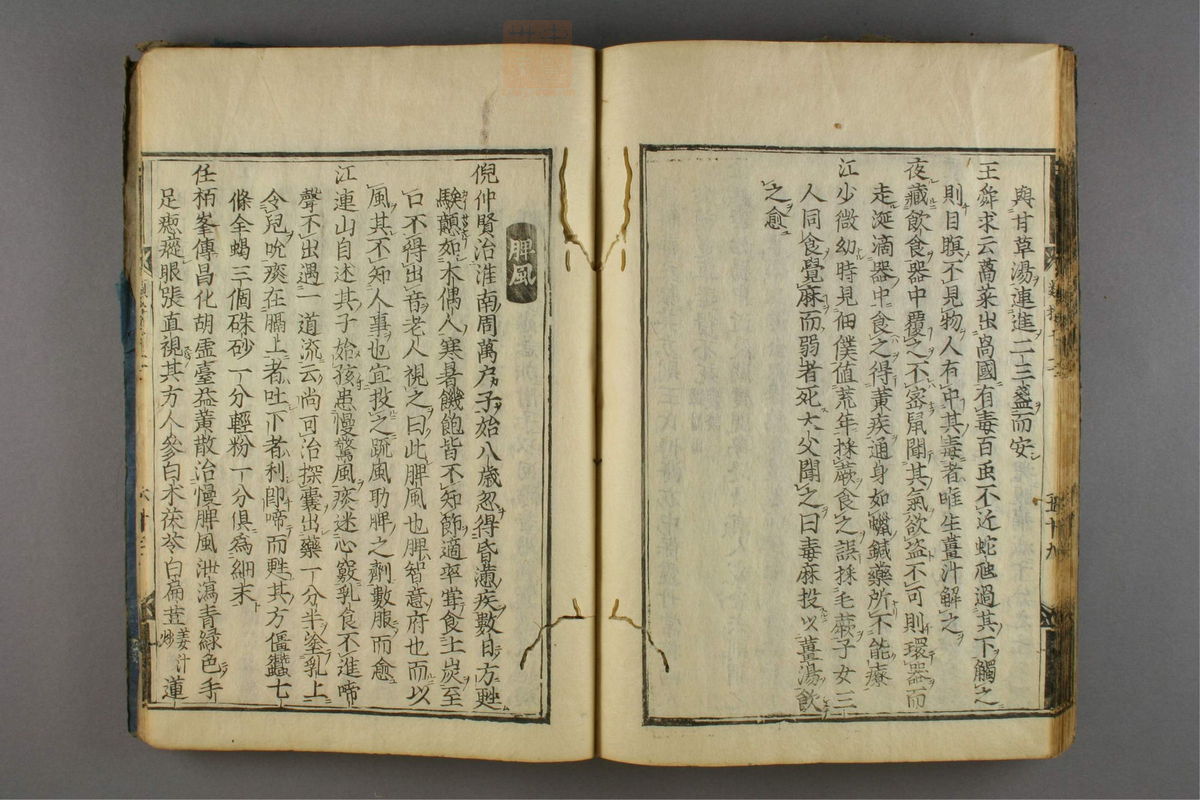 與甘草湯連進二三盞而安
王舜求云萵菜出咼國有毒百虫不近蛇虺過其下觸之
則目瞑不見物人有中其毒者唯生薑汁解之
夜藏飲食器中覆之不密鼠聞其氣欲盗不可則環器而
走涎滴器中食之得黄疾通身如蠟鍼藥所不能療
江少微幼時見佃僕值荒年採蕨食之誤採毛蕨子女三
人同食覺麻而弱者死大父聞之曰毒麻投以薑湯飲
之愈
五十九
脾風
倪仲賢治淮南周萬户子始八歳忽得昏懣疾數日方甦
騃顚如木偶人寒暑饑飽皆不知節適率嘗食土炭至
口不得出音老人視之曰此脾風也脾智意府也而以
風其不知人事也宜投之䟽風助脾之劑數服而愈
江連山自述其子始孩患慢驚風痰迷心竅乳食不進啼
聲不出遇一道流云尚可治探囊出藥一分半塗乳上
令兒吮痰在膈上者吐下者利即啼而甦其方僵蠶七
條全蝎三個硃砂一分輕粉一分俱為細末
任柄峯傳昌化胡虚臺益黄散治慢脾風泄瀉青緑色手
足瘛瘲眼張直視其方人參白术茯苓白扁荳姜汁炒蓮